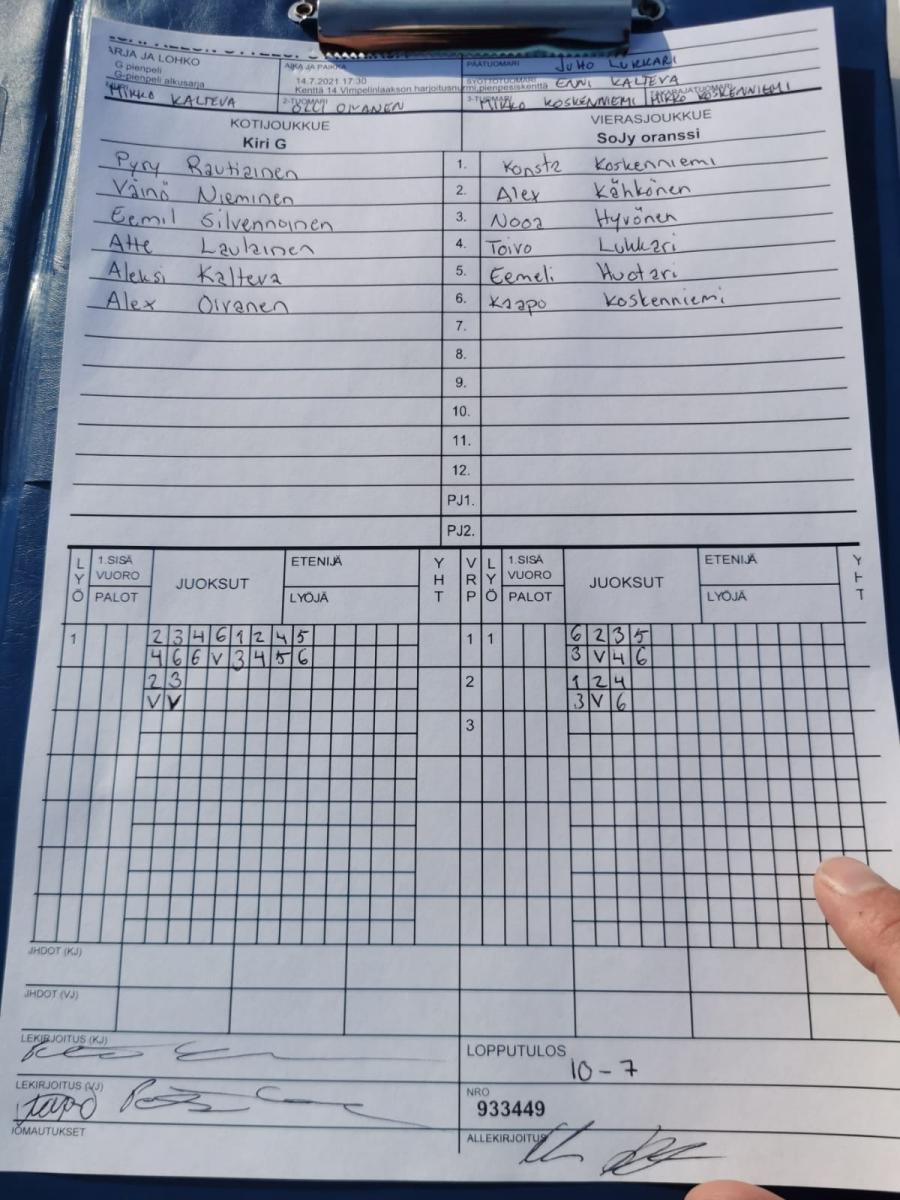 ARJA JA LOHKO
G pienpeli
G-pienpeli alkusarja
AIKA JA PAIKKA
14.7.2021 17:30
Kenttä 14 Vimpelinlaakson harjoitusnurmi,pienpesiskenttä
PÄÄTUOMARI JUHO LUKKARI
SYÖTTÖTUOMARI ENNI KALTEVA
MIKKO KALTEVA
2-TUOMARI OLLI OIVANEN
3-TUOMARI MIKKO KOSKENNIEMI
TAKARAJATUOMARI MIKKO KOSKENNIEMI
KOTIJOUKKUE VIERASJOUKKUE
Kiri G SoJy oranssi
Pyry Rautiainen 1. Konsta Koskenniemi
Väinö Nieminen 2. Alex Kähkönen
Eemil Silvennoinen 3. Nooa Hyvönen
Atte Laulainen 4. Toivo Lukkari
Aleksi Kalteva 5. Eemeli Huotari
Alex Oivanen 6. Kaapo Koskenniemi
7.
8.
9.
10.
11.
12.
PJ1.
PJ2.
LYÖ 1.SISÄ VUORO PALOT JUOKSUT ETENIJÄ LYÖJÄ YHT VRP LYÖ 1.SISÄ VUORO PALOT JUOKSUT ETENIJÄ LYÖJÄ YHT
1 2 3 4 6 1 2 4 5 1 1 6 2 3 5
4 6 6 V 3 4 5 6 3 V 4 6
2 3 2 1 2 4
V V 3 V 6
3
JHDOT (KJ)
JHDOT (VJ)
LEKIRJOITUS (KJ)
LOPPUTULOS
10-7
LEKIRJOITUS (VJ)
NRO
933449
IOMAUTUKSET
ALLEKIRJOITUS